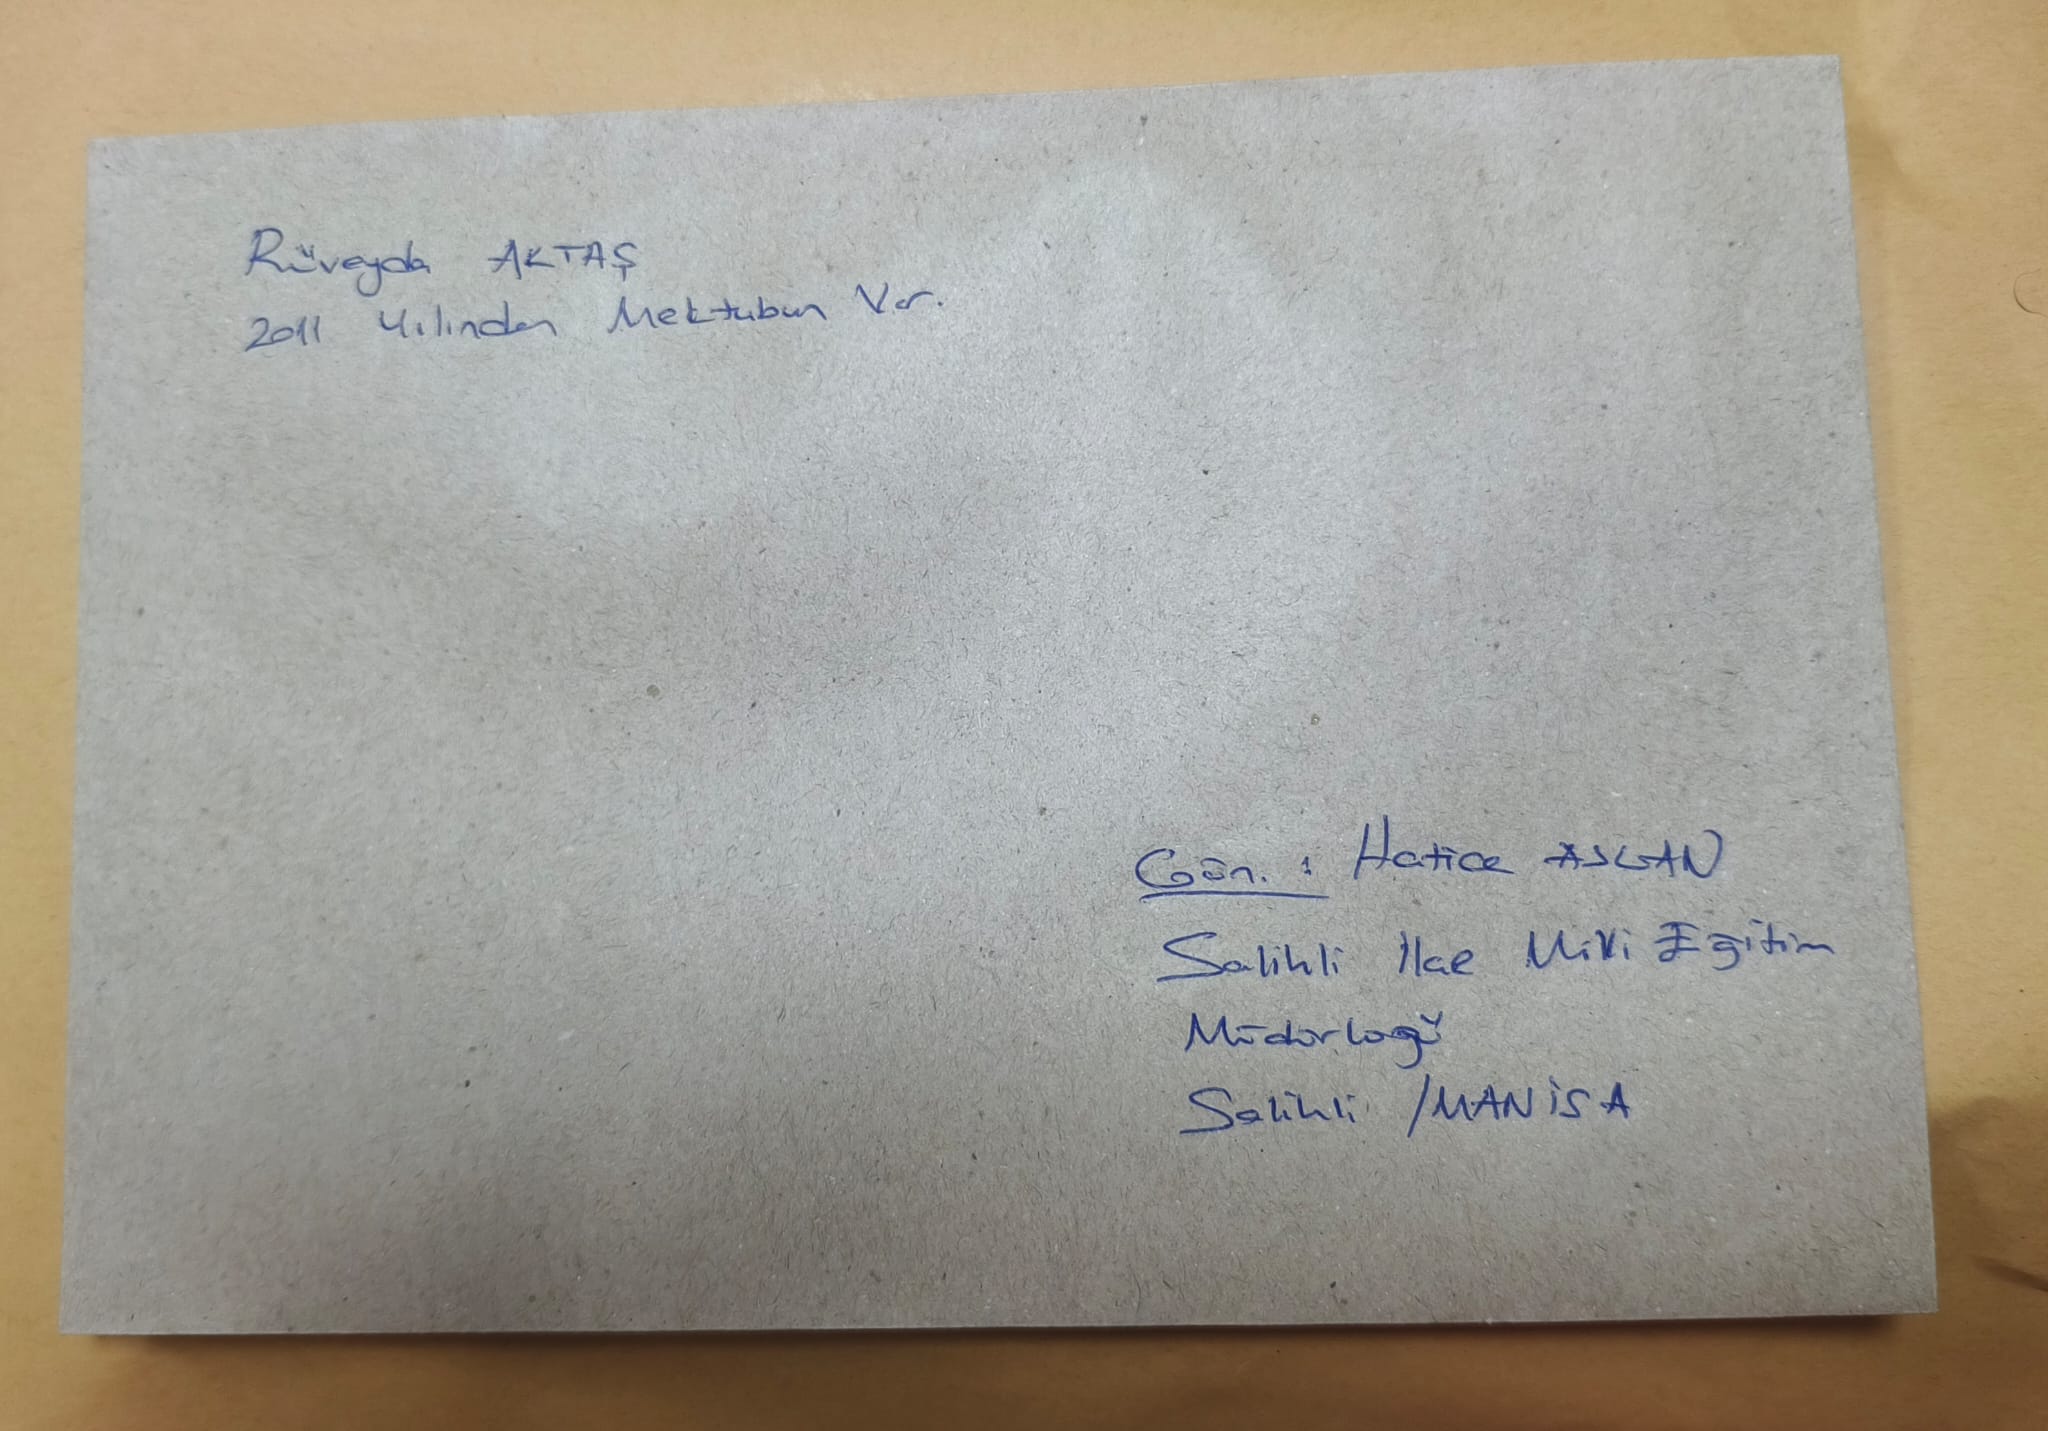 Rüveyda AKTAŞ
2011 Yılından Mektubun Var.
Gön. : Hatice ASLAN
Salihli İlçe Milli Eğitim
Müdürlüğü
Salihli /MANİSA